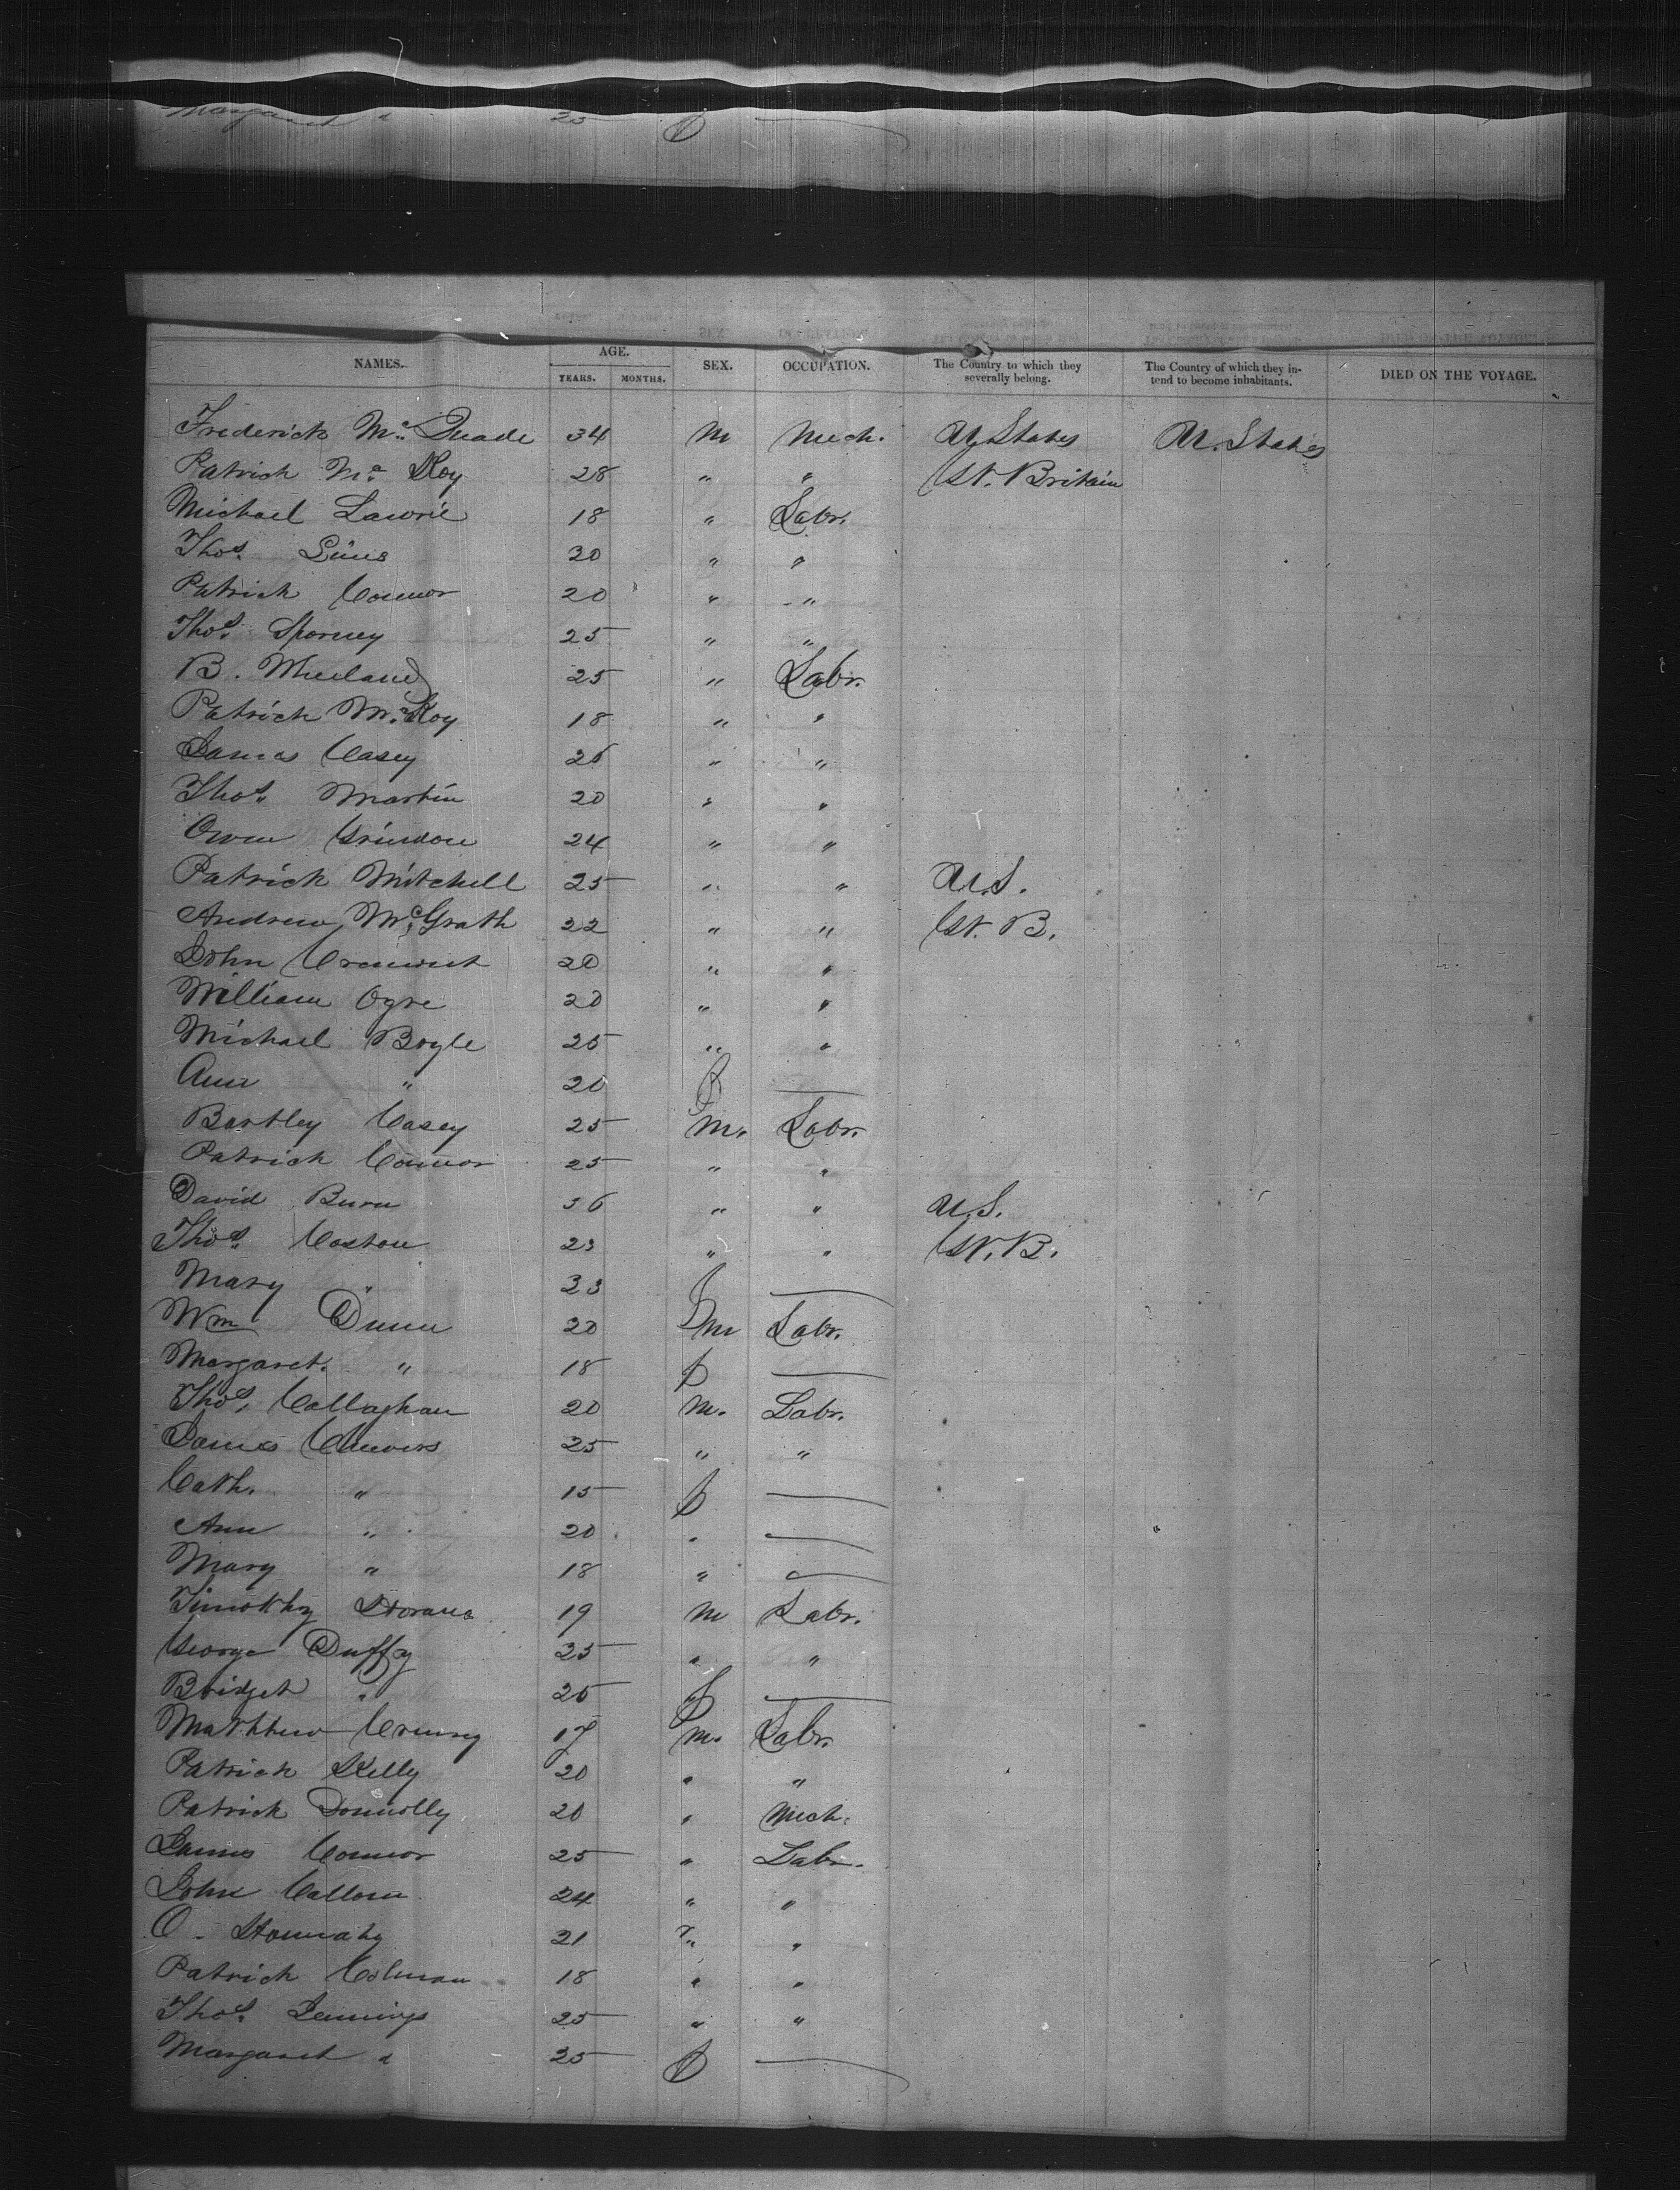 Margaret " 25 f —
NAMES. AGE. YEARS. MONTHS. SEX. OCCUPATION. The Country to which they severally belong. The Country of which they intend to become inhabitants. DIED ON THE VOYAGE.
Frederick Mc. Quade 34 M Mech. U. States U. States
Patrick Mc. Koy 28 " " Gt. Britain
Michael Lawrie 18 " Labr.
Thos. 20 " "
Patrick Connor 20 " "
Thos. 25 " "
B. 25 " Labr.
Patrick Mc. Koy 18 " "
James Casey 26 " "
Thos. Martin 20 " "
Owen 24 " "
Patrick Mitchell 25 " " U.S.
Andrew McGrath 22 " " Gt. B.
John 20 " "
William Ogre 20 " "
Michael Boyle 25 " "
Ann " 20 f —
Bartley Casey 25 M. Labr.
Patrick Connor 25 " "
David Burn 36 " " U.S.
Thos. Coston 23 " " Gt. B.
Mary " 23 f —
Wm Dunn 20 M Labr.
Margaret. " 18 f —
Thos. Callaghan 20 M. Labr.
James 25 " "
Cath. " 15 f —
Ann " 20 " —
Mary " 18 " —
Timothy 19 M Labr.
George Duffy 25 " "
Bridget " 25 f —
Matthew 17 M. Labr.
Patrick Kelly 20 " "
Patrick Donnolly 20 " Mech.
James Connor 25 " Labr.
John 24 " "
O. 21 " "
Patrick Colman 18 " "
Thos. Jennings 25 " "
Margaret " 25 f —